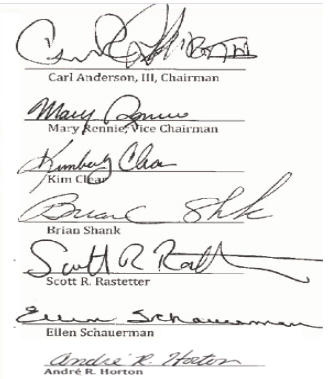 Carl Anderson, III, Chairman
Mary Rennie
Mary Rennie, Vice Chairman
Kimberly Clear
Kim Clear
Brian Shank
Brian Shank
Scott R. Rastetter
Scott R. Rastetter
Ellen Schauerman
Ellen Schauerman
André R. Horton
André R. Horton